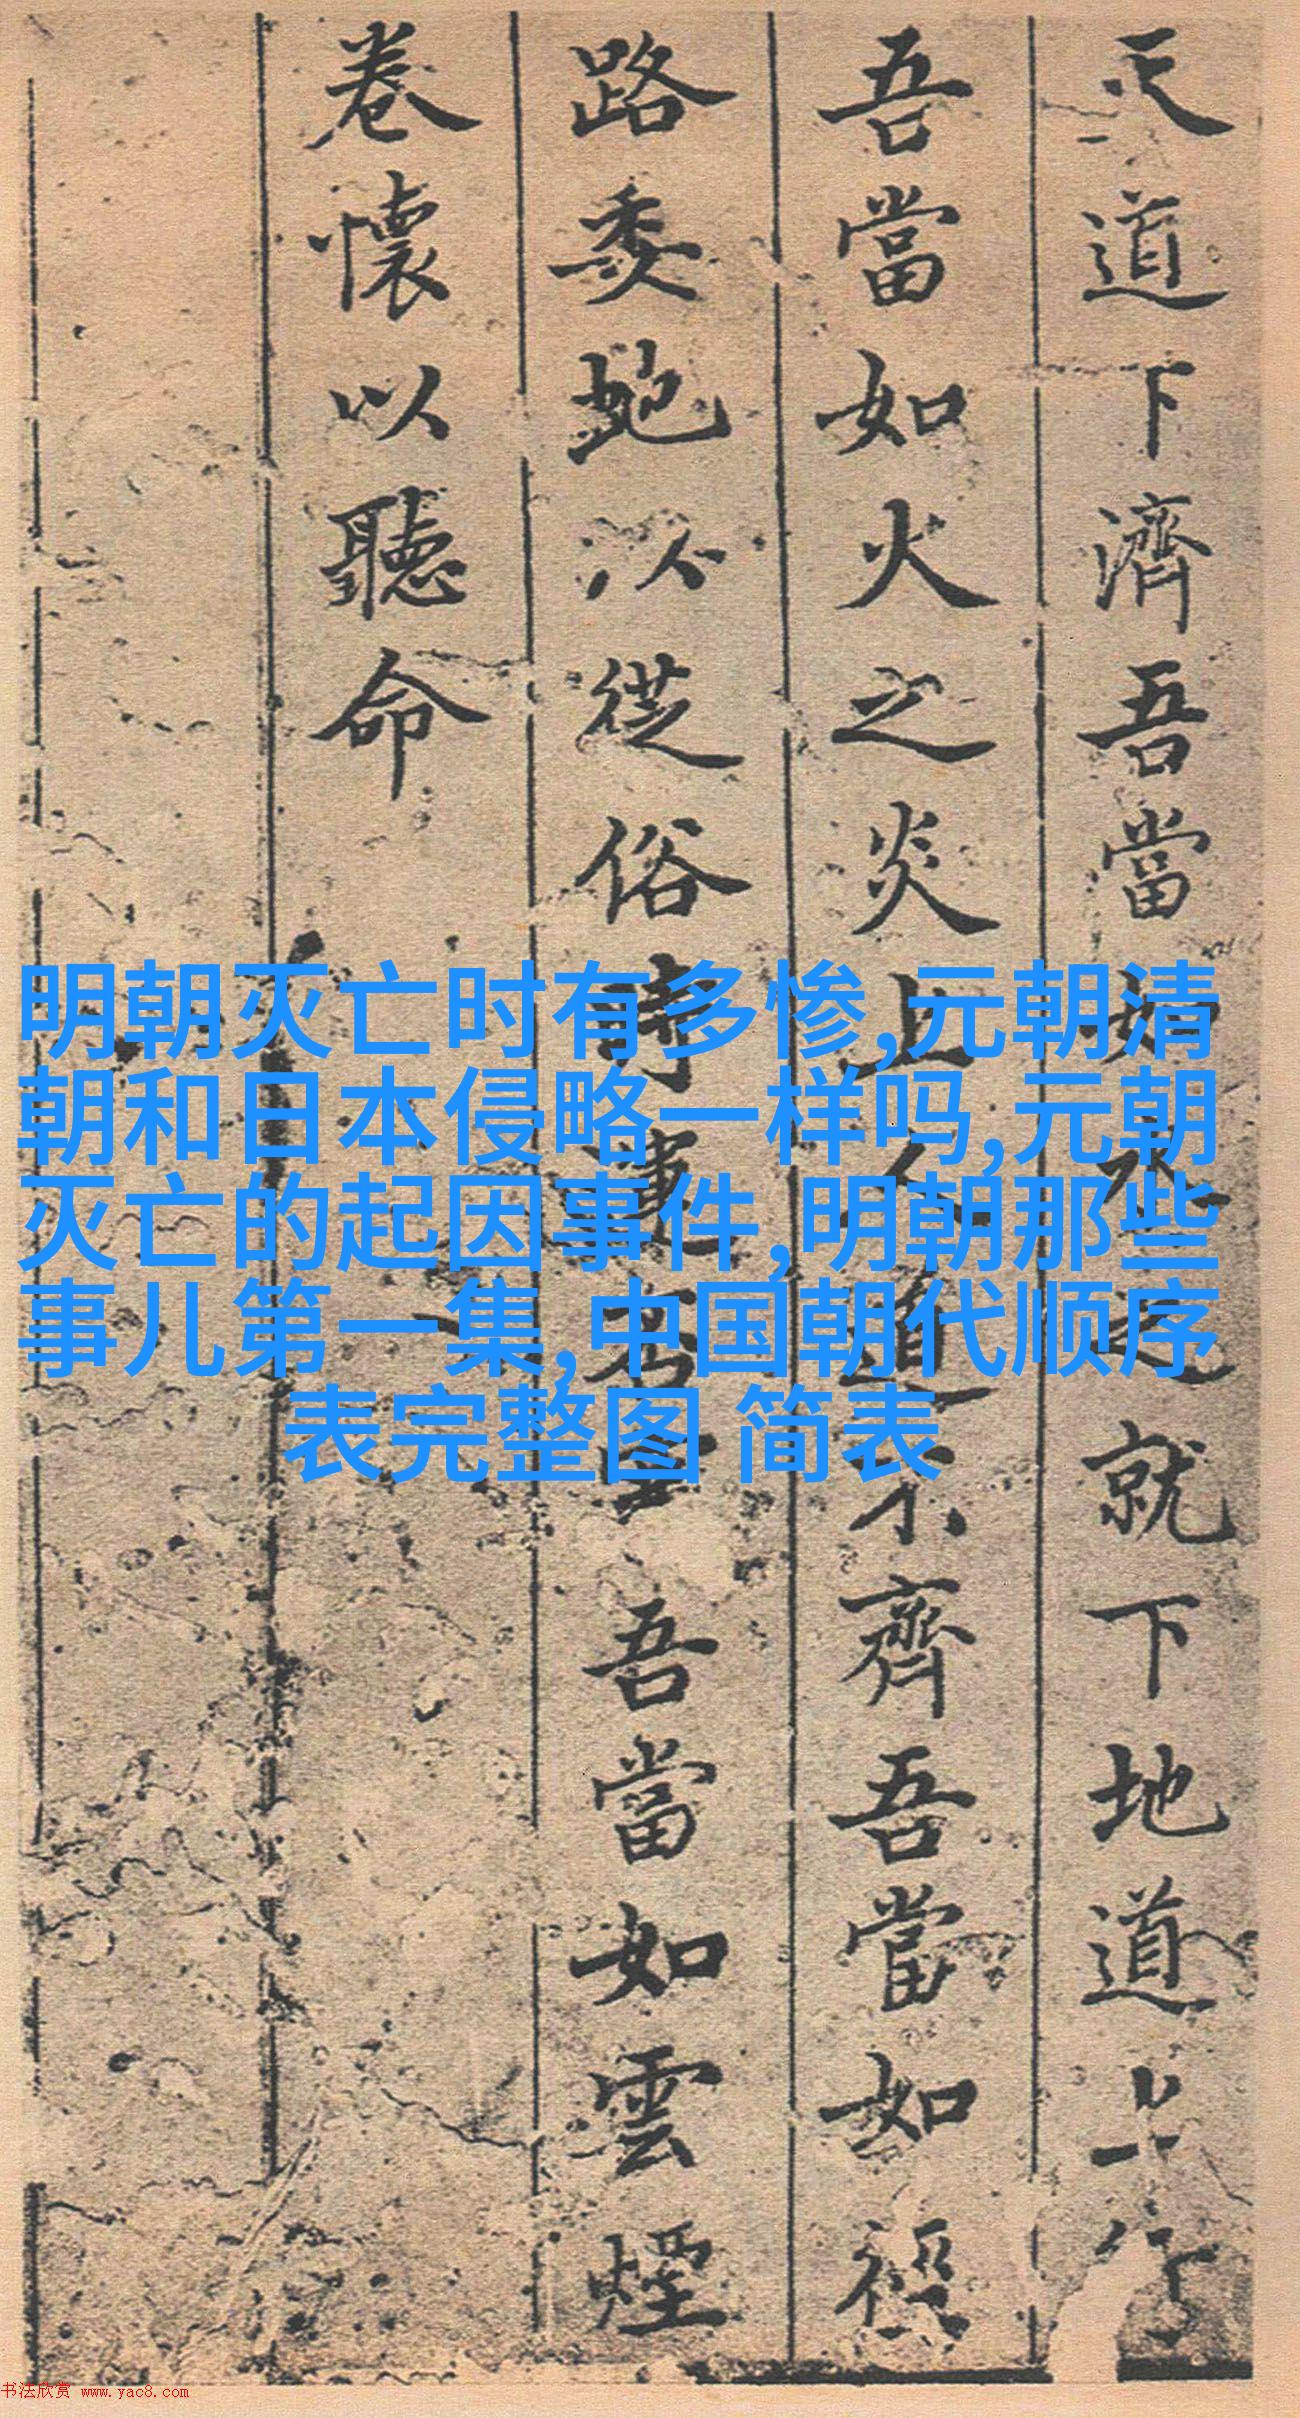 天道下濟吾當如水之就下地道上行
吾當如火之炎上人道不齊吾當如
路委蛇以從俗
吾當如雲煙
卷懷以聽命
明朝灭亡时有多惨,元朝清
朝和日本侵略一样吗,元朝
灭亡的起因事件,明朝那些
事儿第一集,中国朝代顺序
表完整图 简表
书法欣赏 www.yac8.com